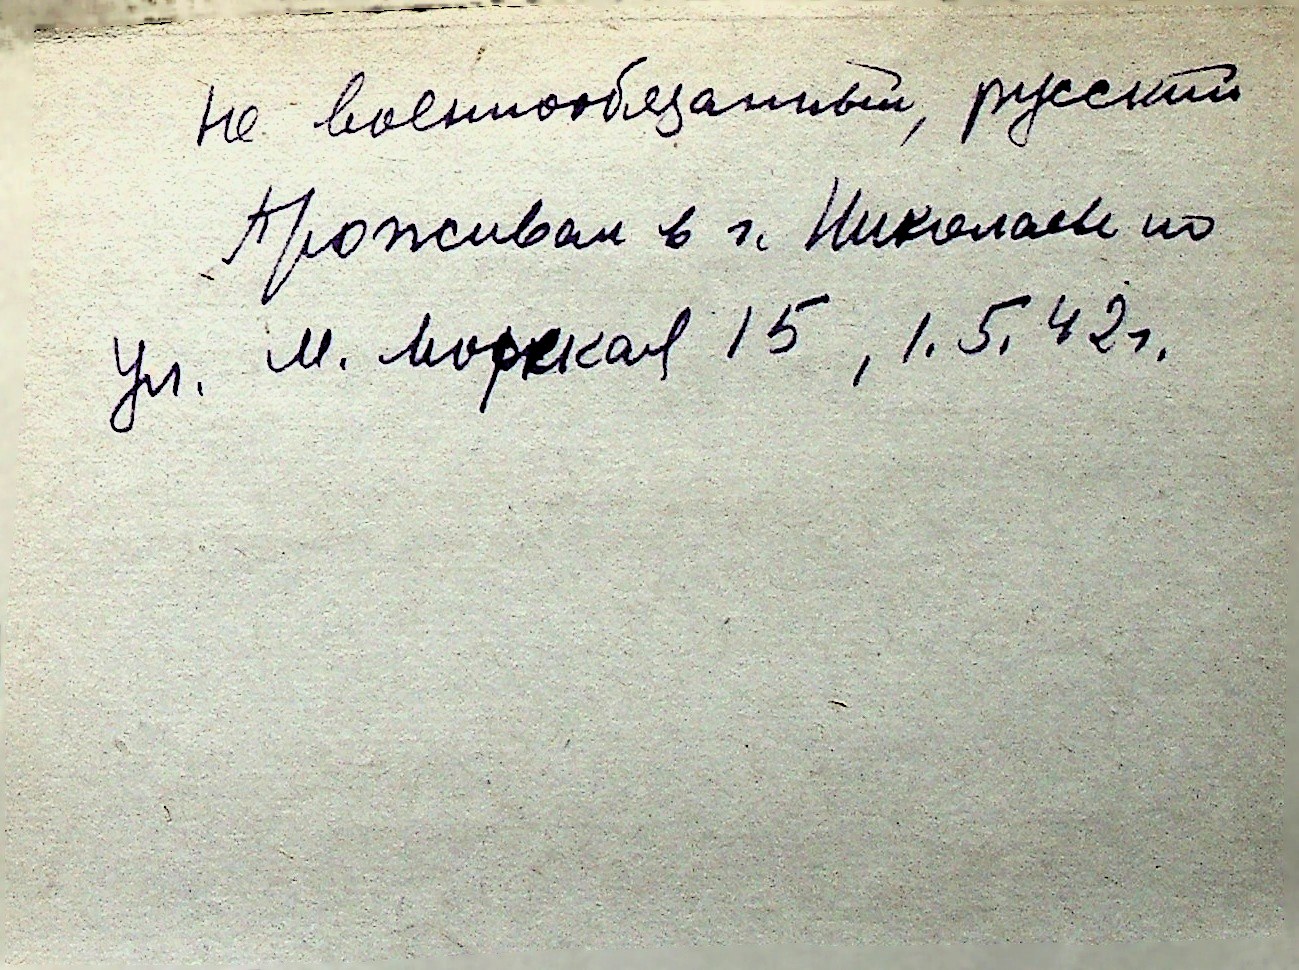 не военнообязанный, русский
Проживал в г. Николаеве по
ул. М. Морская 15, 1.5.42 г.